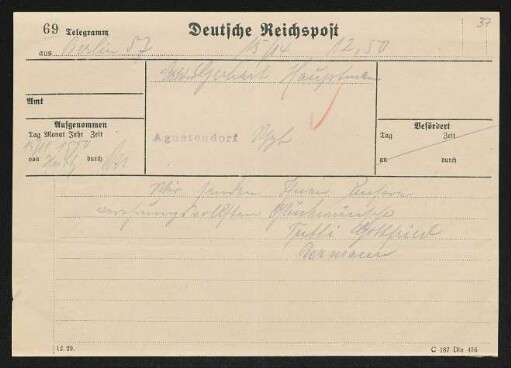 37
69 Telegramm Deutsche Reichspost
aus Berlin 57 15/14 12,50
Gerhart Hauptmann
Amt
Aufgenommen
Tag Monat Jahr Zeit
von durch
Agnetendorf
Befördert
Tag Zeit
an durch
Wir senden Ihnen unsere
verehrungsvollsten Glückwünsche
Tutti Gottfried
Bermann
12. 29.
C 187 Din 476